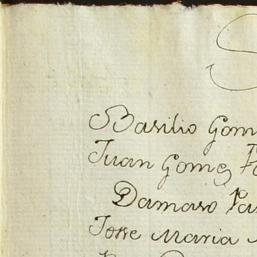 Basilio Gom
Juan Gomez
Damaso
Jose Maria